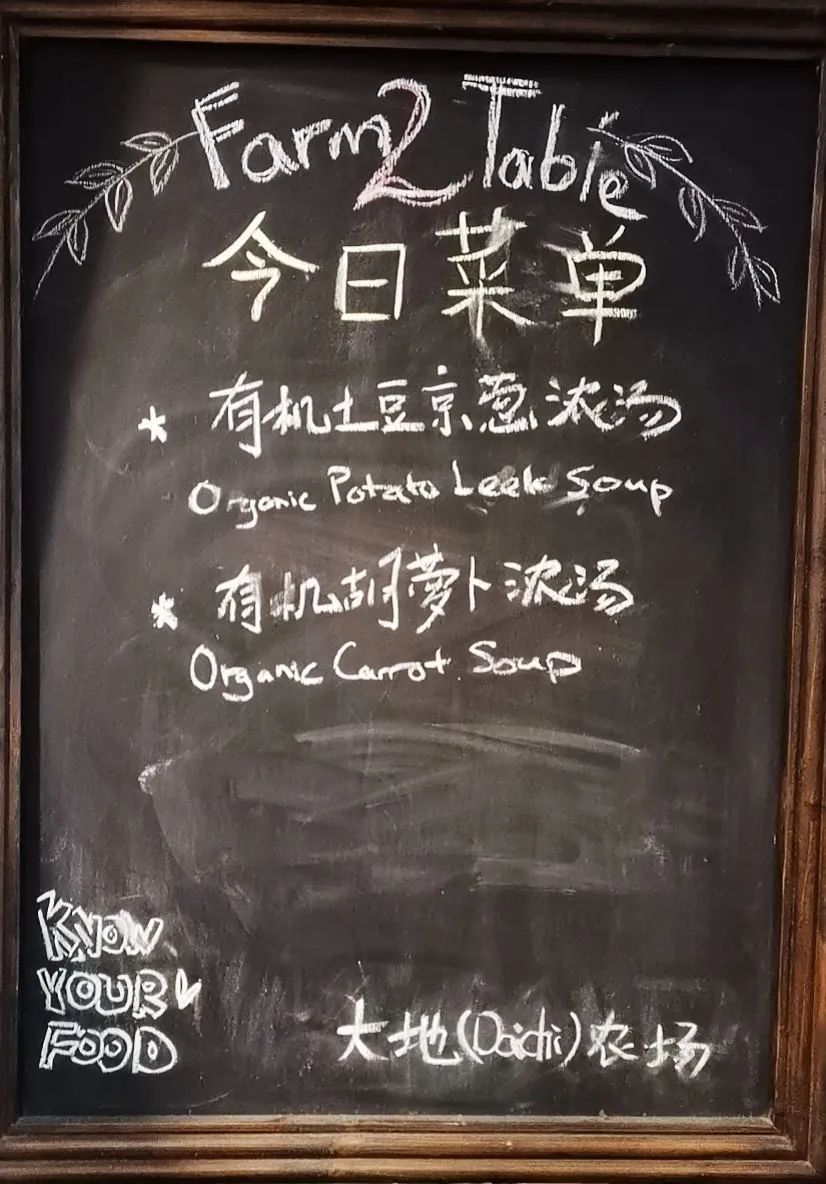 Farm 2 Table
今日菜单
* 有机土豆京葱浓汤
Organic Potato Leek Soup
* 有机胡萝卜浓汤
Organic Carrot Soup
KNOW
YOUR
FOOD
大地(Daichi)农场